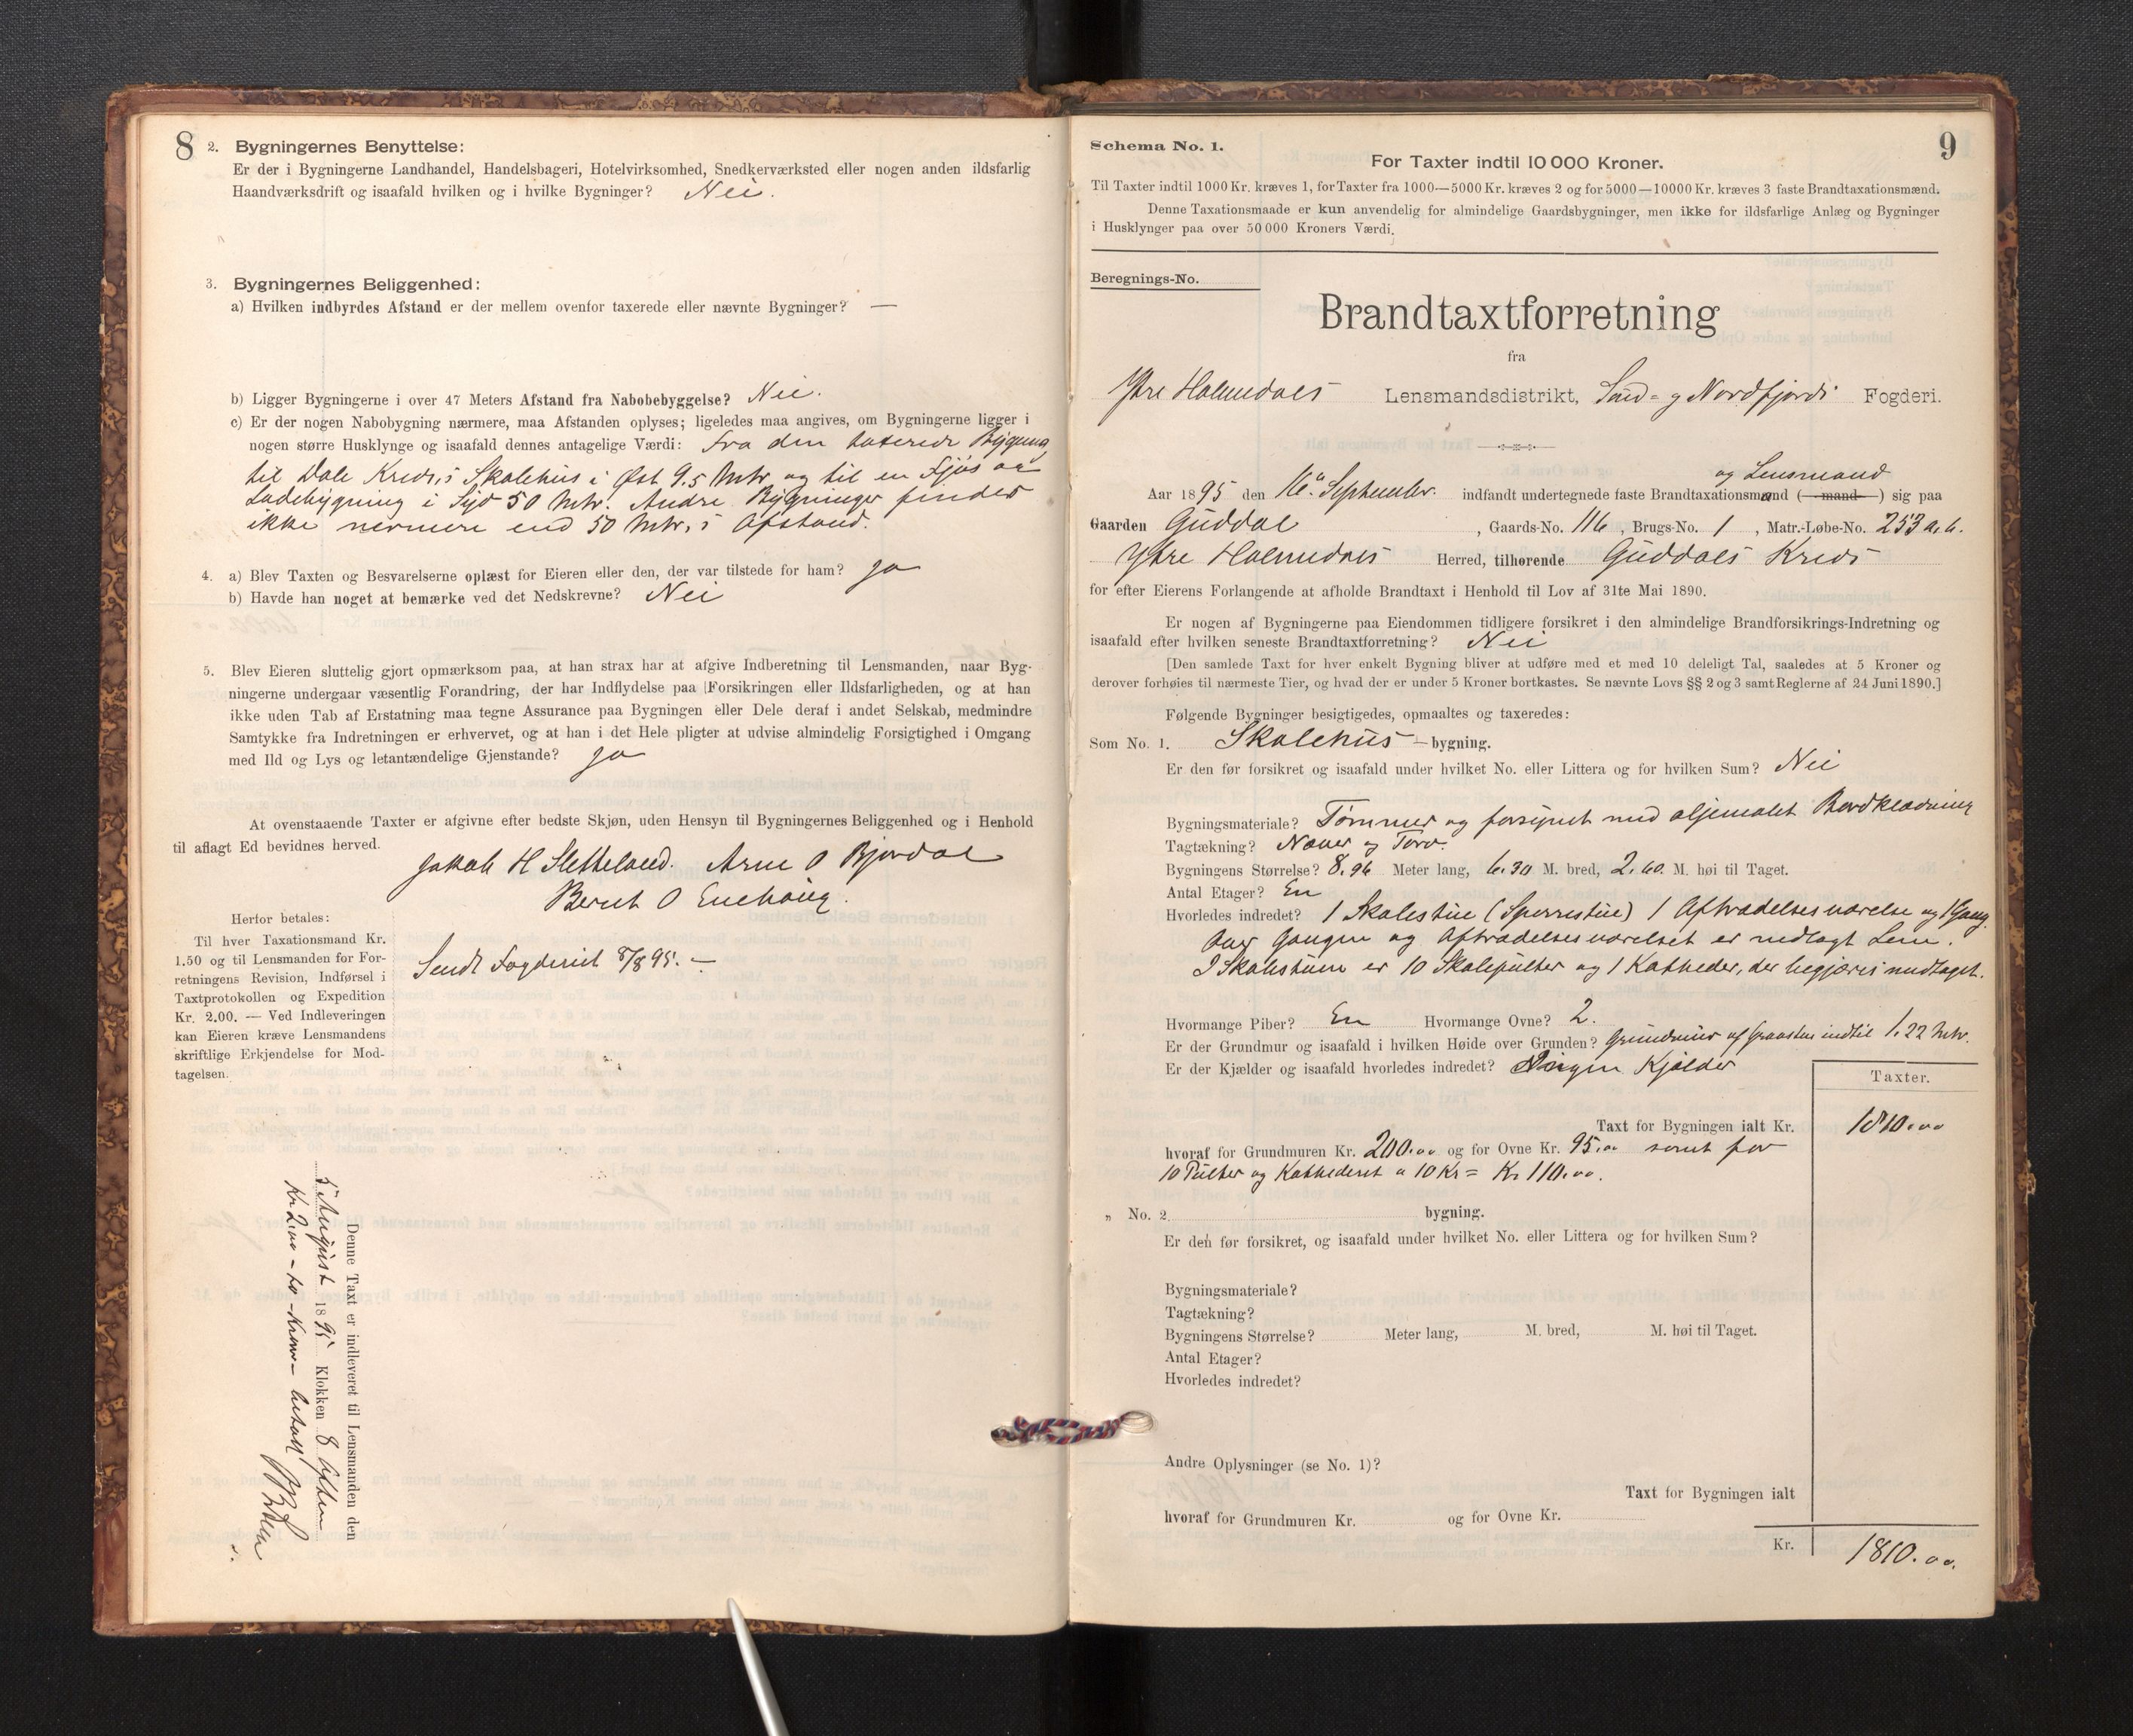 8
2. Bygningernes Benyttelse:
Er der i Bygningerne Landhandel, Handelsbageri, Hotelvirksomhed, Snedkerværksted eller nogen anden ildsfarlig
Haandværksdrift og isaafald hvilken og i hvilke Bygninger? Nei.
3. Bygningernes Beliggenhed:
a) Hvilken indbyrdes Afstand er der mellem ovenfor taxerede eller nævnte Bygninger? —
b) Ligger Bygningerne i over 47 Meters Afstand fra Nabobebyggelse? Nei.
c) Er der nogen Nabobygning nærmere, maa Afstanden oplyses; ligeledes maa angives, om Bygningerne ligger i
nogen større Husklynge og isaafald dennes antagelige Værdi: Fra den taxerede Bygning
til Dale Kreds's Skolehus i Øst 9.5 Mtr og til en Fjøs og
Ladebygning i Syd 50 Mtr. Andre Bygninger findes
ikke nærmere end 50 Mtr.s Afstand.
4. a) Blev Taxten og Besvarelserne oplæst for Eieren eller den, der var tilstede for ham? ja
b) Havde han noget at bemærke ved det Nedskrevne? Nei
5. Blev Eieren sluttelig gjort opmærksom paa, at han strax har at afgive Indberetning til Lensmanden, naar Byg-
ningerne undergaar væsentlig Forandring, der har Indflydelse paa Forsikringen eller Ildsfarligheden, og at han
ikke uden Tab af Erstatning maa tegne Assurance paa Bygningen eller Dele deraf i andet Selskab, medmindre
Samtykke fra Indretningen er erhvervet, og at han i det Hele pligter at udvise almindelig Forsigtighed i Omgang
med Ild og Lys og letantændelige Gjenstande? ja
At ovenstaaende Taxter er afgivne efter bedste Skjøn, uden Hensyn til Bygningernes Beliggenhed og i Henhold
til aflagt Ed bevidnes herved.
Jakob H Sletteland. Arne O Bjordal
Bernt O
Herfor betales:
Til hver Taxationsmand Kr.
1.50 og til Lensmanden for For-
retningens Revision, Indførsel i
Taxtprotokollen og Expedition
Kr. 2.00. — Ved Indleveringen
kan Eieren kræve Lensmandens
skriftlige Erkjendelse for Mod-
tagelsen.
Sendt Fogderiet 8/8 95. —
Denne Taxt er indleveret til Lensmanden den
5 August 1895 Klokken 8 Aften
Kr 2,00 - to - Kroner - betalt
9
Schema No. 1.
For Taxter indtil 10 000 Kroner.
Til Taxter indtil 1000 Kr. kræves 1, for Taxter fra 1000—5000 Kr. kræves 2 og for 5000—10000 Kr. kræves 3 faste Brandtaxationsmænd.
Denne Taxationsmaade er kun anvendelig for almindelige Gaardsbygninger, men ikke for ildsfarlige Anlæg og Bygninger
i Husklynger paa over 50 000 Kroners Værdi.
Beregnings-No.
Brandtaxtforretning
fra
Ytre Holmedals Lensmandsdistrikt, Sønd- og Nordfjords Fogderi.
og Lensmand
Aar 1895 den 16de September. indfandt undertegnede faste Brandtaxationsmand (mand) sig paa
Gaarden Guddal, Gaards-No. 116, Brugs-No. 1, Matr.-Løbe-No. 253 a.b.
Ytre Holmedals Herred, tilhørende Guddals Kreds
for efter Eierens Forlangende at afholde Brandtaxt i Henhold til Lov af 31te Mai 1890.
Er nogen af Bygningerne paa Eiendommen tidligere forsikret i den almindelige Brandforsikrings-Indretning og
isaafald efter hvilken seneste Brandtaxtforretning? Nei
[Den samlede Taxt for hver enkelt Bygning bliver at udføre med et med 10 deleligt Tal, saaledes at 5 Kroner og
derover forhøies til nærmeste Tier, og hvad der er under 5 Kroner bortkastes. Se nævnte Lovs §§ 2 og 3 samt Reglerne af 24 Juni 1890.]
Følgende Bygninger besigtigedes, opmaaltes og taxeredes:
Som No. 1. Skolehus-bygning.
Er den før forsikret og isaafald under hvilket No. eller Littera og for hvilken Sum? Nei
Bygningsmateriale? Tømmer og forsynet med oljemalet Bordklædning
Tagtækning? Næver og Torv.
Bygningens Størrelse? 8.96 Meter lang, 6.30 M. bred, 2.60. M. høi til Taget.
Antal Etager? En
Hvorledes indredet? 1 Skolestue (Sperrestue) 1 Aftrædelsesværelse og 1 Gang.
Over Gangen og Aftrædelsesværelset er nedlagt Lem.
I Skolestuen er 10 Skolepulter og 1 Katheder, der begjæres medtaget.
Hvormange Piber? En Hvormange Ovne? 2.
Er der Grundmur og isaafald i hvilken Høide over Grunden? Grundmur af Graasten indtil 1.22 Mtr.
Er der Kjælder og isaafald hvorledes indredet? Ingen Kjælder
Taxter.
Taxt for Bygningen ialt Kr. 1810.00
hvoraf for Grundmuren Kr. 200.00 og for Ovne Kr. 95.00 samt for
10 Pulter og Kathederet a 10 Kr = Kr 110.00.
„ No. 2. bygning.
Er den før forsikret, og isaafald under hvilket No. eller Littera og for hvilken Sum?
Bygningsmateriale?
Tagtækning?
Bygningens Størrelse? Meter lang, M. bred, M. høi til Taget.
Antal Etager?
Hvorledes indredet?
Andre Oplysninger (se No. 1)?
Taxt for Bygningen ialt
hvoraf for Grundmuren Kr. og for Ovne Kr.
Kr. 1810.00.